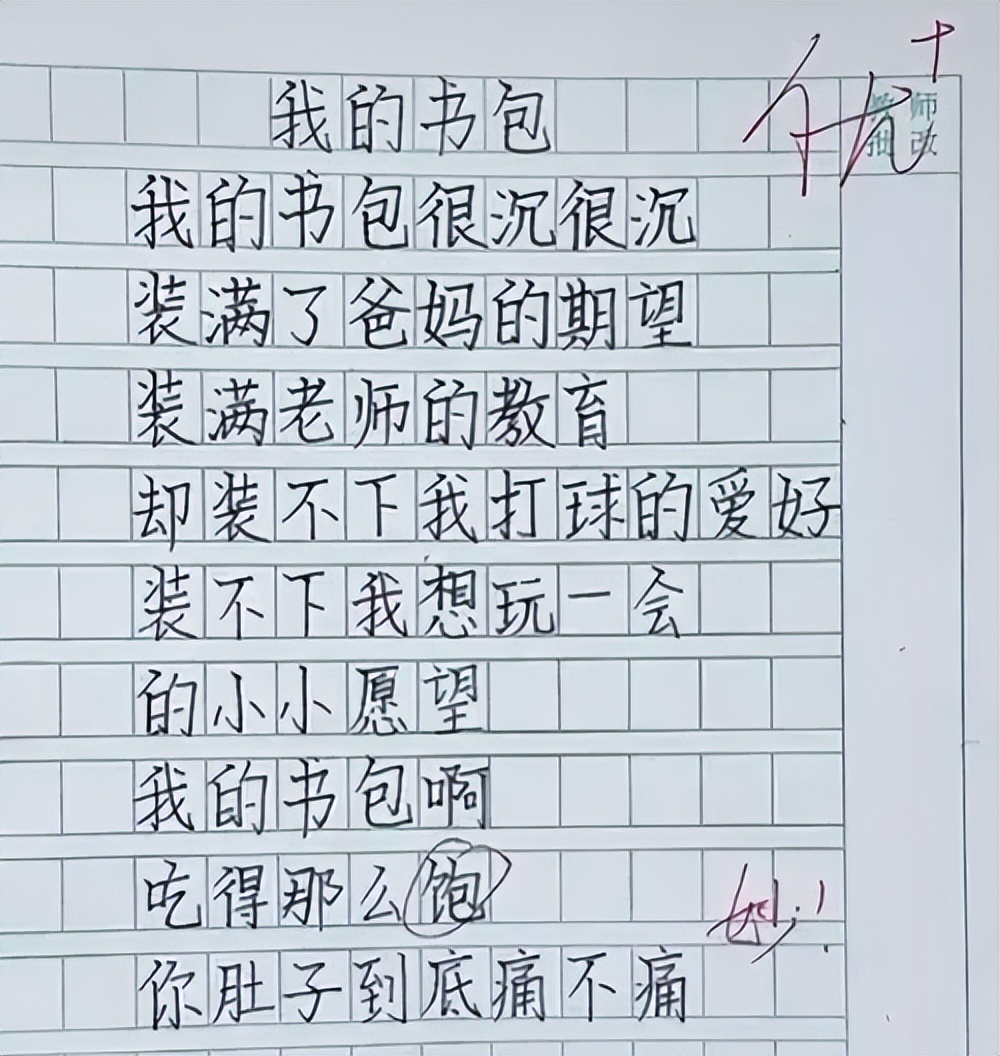 优+
教师
批改
我的书包
我的书包很沉很沉
装满了爸妈的期望
装满老师的教育
却装不下我打球的爱好
装不下我想玩一会
的小小愿望
我的书包啊
吃得那么饱
妙！
你肚子到底痛不痛